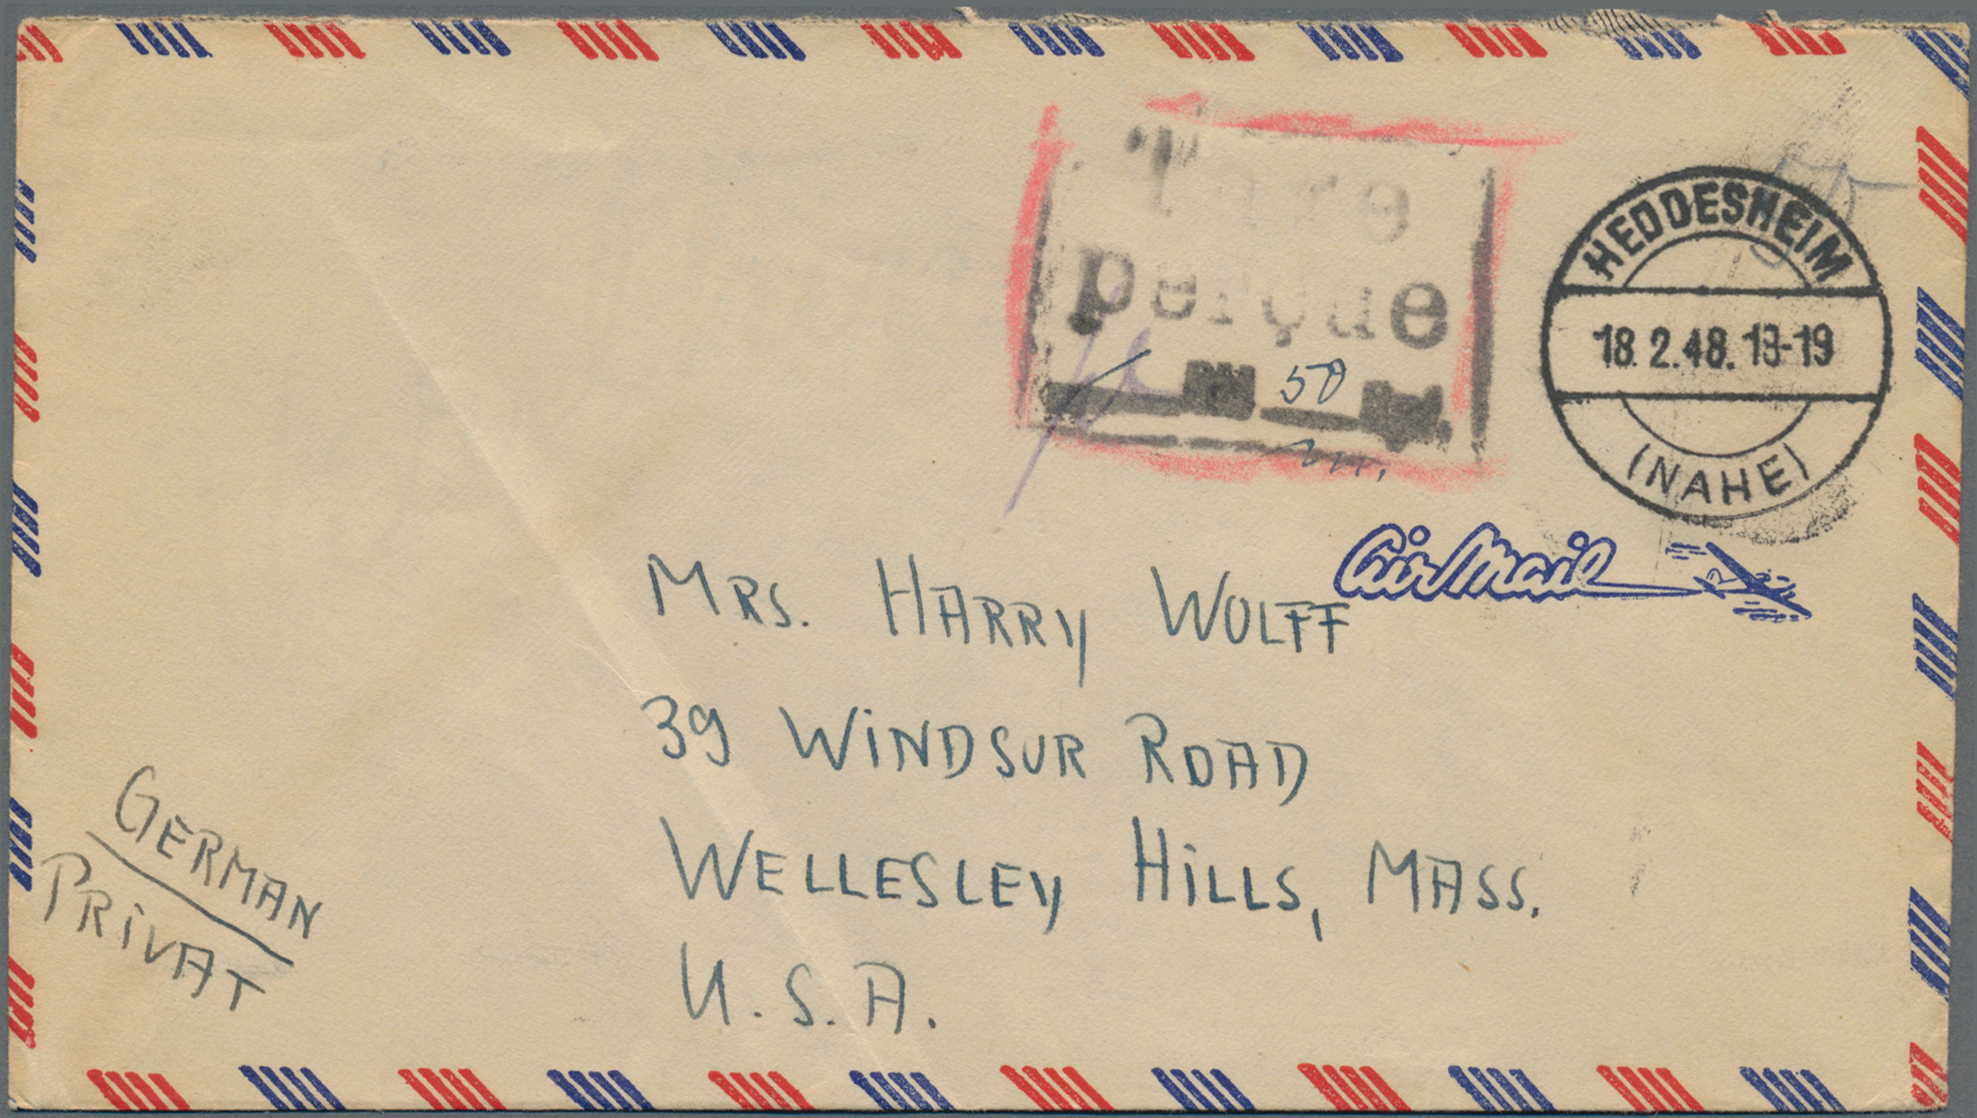 Taxe
perçue
50
HEDDESHEIM
18.2.48.18-19
(NAHE)
Air Mail
MRS. HARRY WOLFF
39 WINDSUR ROAD
WELLESLEY HILLS, MASS.
U.S.A.
GERMAN
PRIVAT